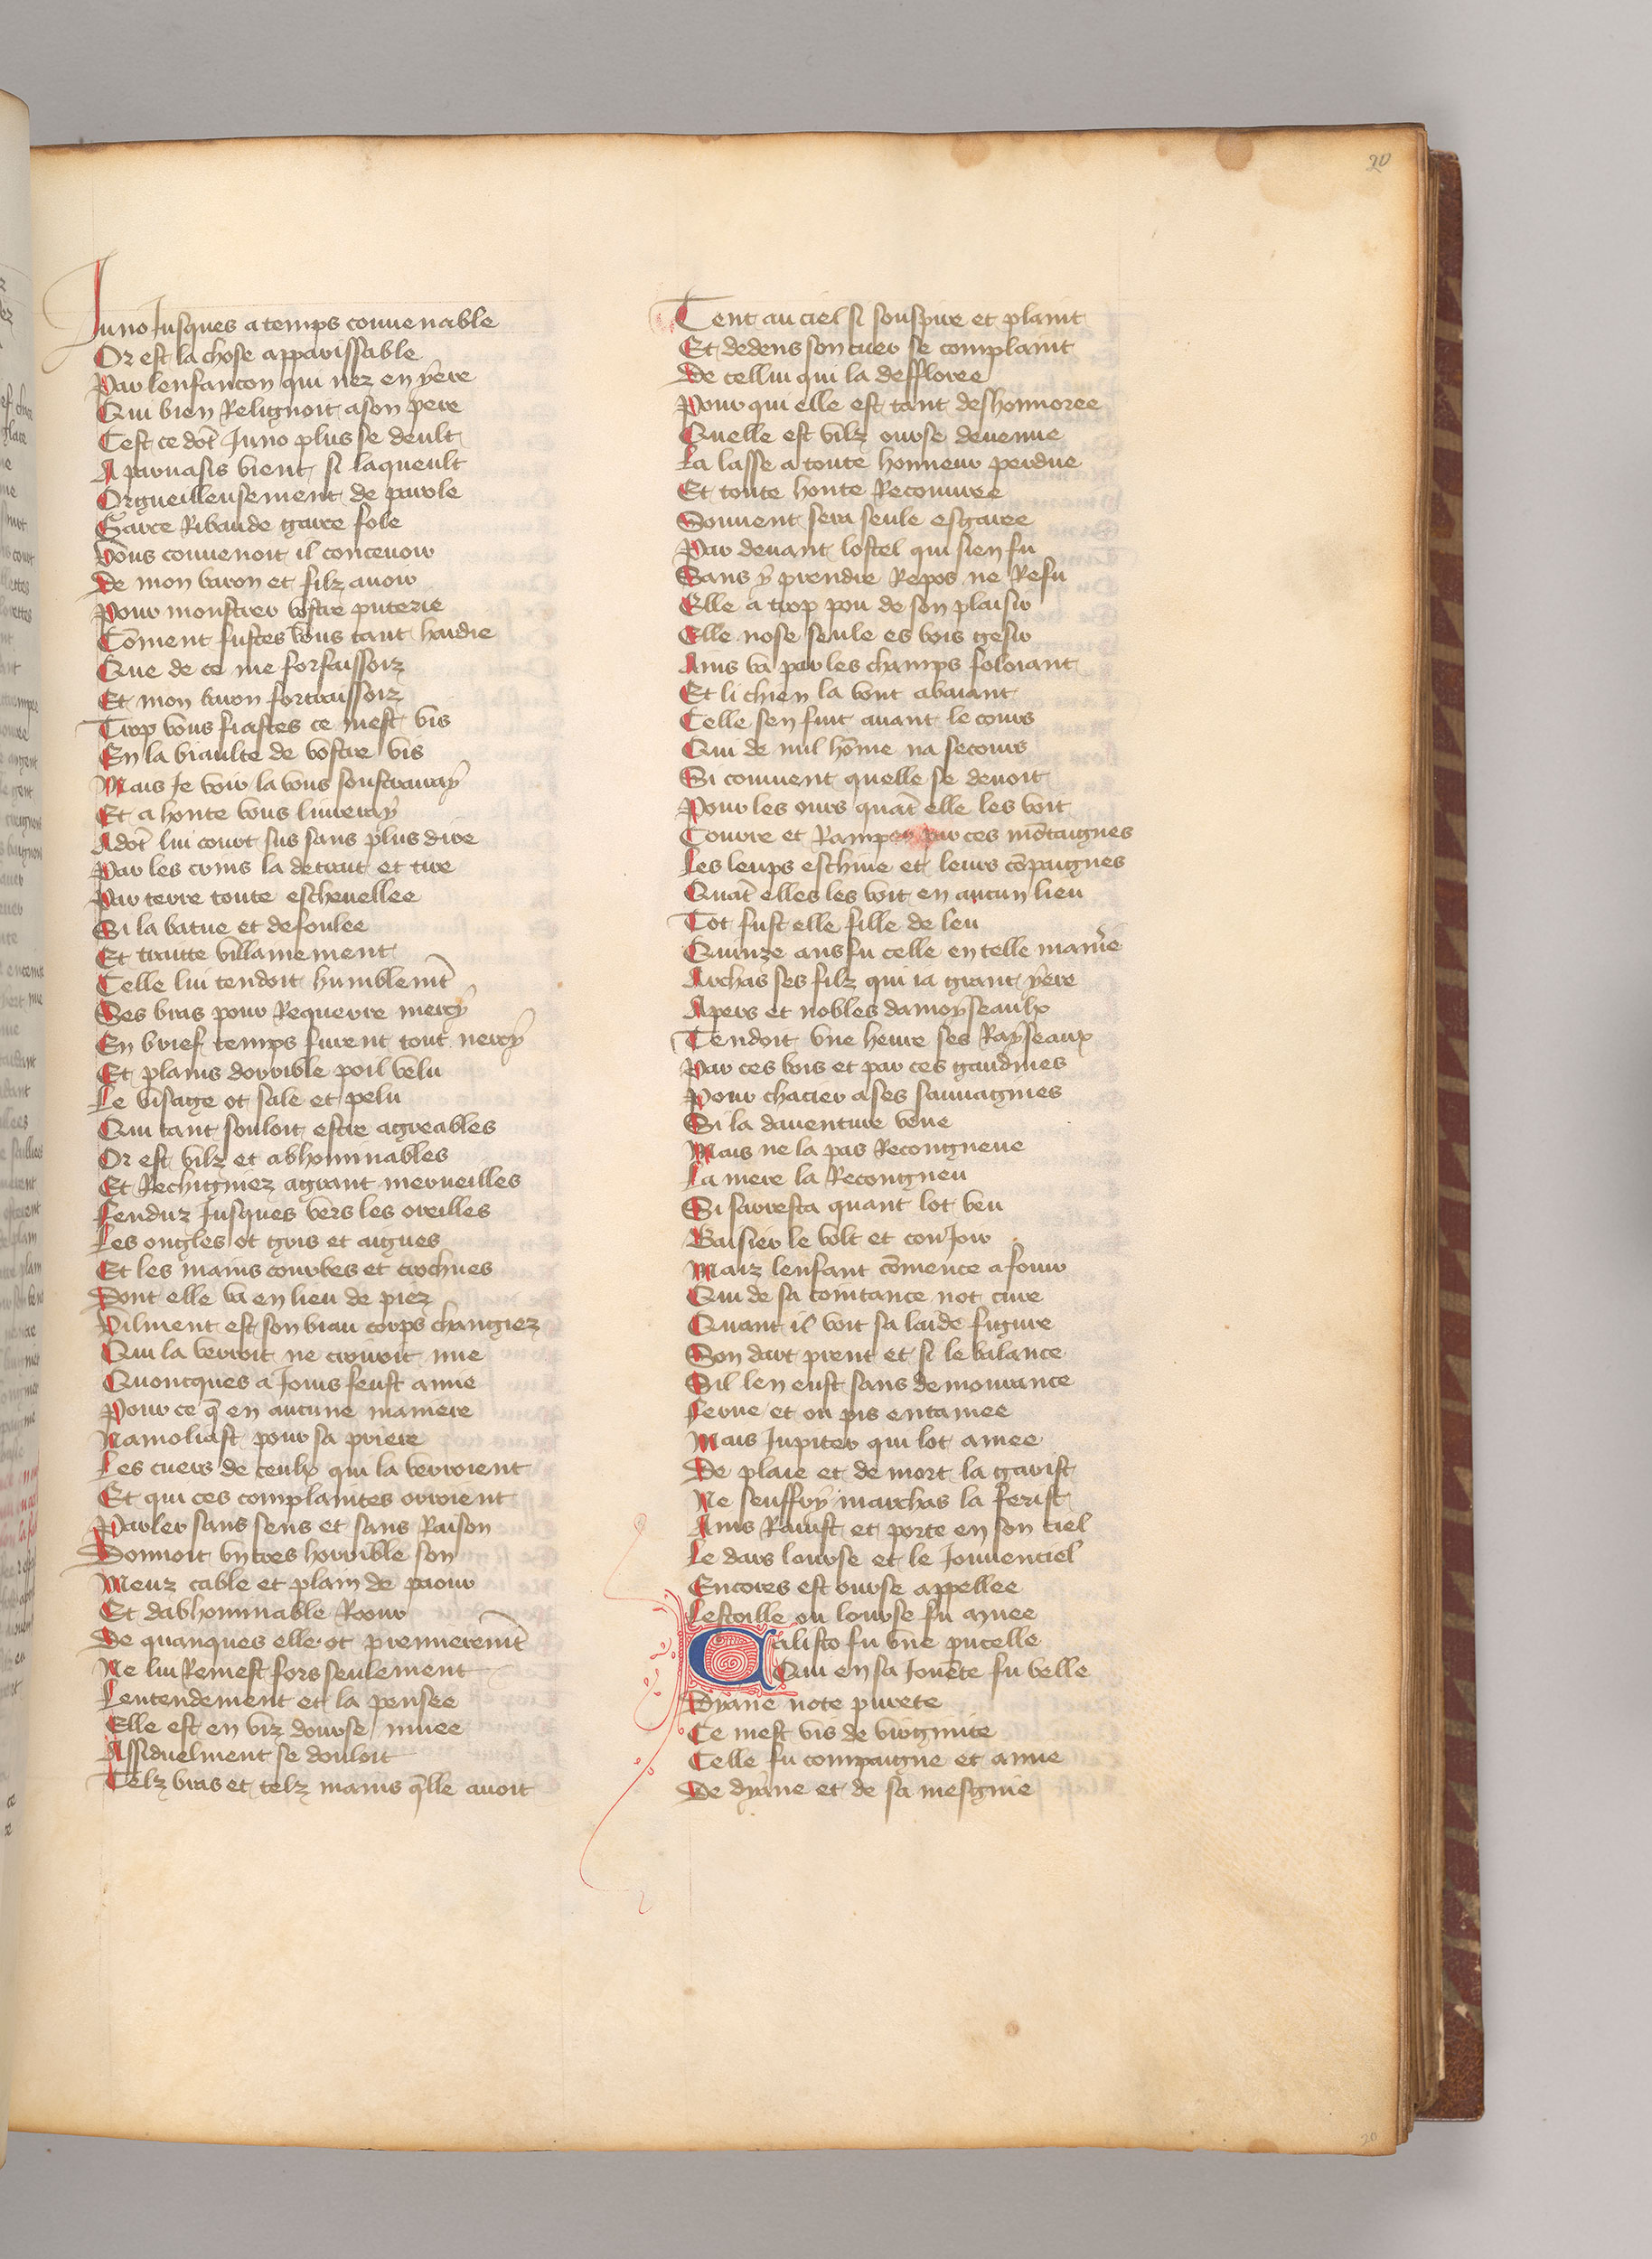 20
Juno Jusques a temps conuenable
Or est la chose apparissable
Par lenfancon qui nez en yere
Qui bien Relignoit a son pere
Cest ce dot Juno plus se deult
A parnasis vient si laqueult
Orgueilleusement de parole
Garce Ribaude garce fole
Vous conuenoit il conceuoir
De mon baron et filz auoir
Pour monstrer vostre puterie
Coment fustes vous tant hardie
Que de ce me forfaissoiz
Et mon baron fortraissoiz
Trop vous fiastes ce mest vis
En la biaulte de vostre vis
Mais Je voir la vous soustrairay
Et a honte vous liureray
Adot lui court sus sans plus dire
Par les crins la detrait et tire
Par terre toute escheuellee
Si la batue et defoulee
Et traitte villainement
Celle lui tendoit humblemt
Ses bras pour Requerre mercy
En brief temps furent tout nercy
Et plains dorrible poil velu
Le visage ot sale et pelu
Qui tant souloit estre agreables
Or est vilz et abhominables
Et Rechigniez a grant merueilles
Fenduz Jusques vers les oreilles
Les ongles ot gris et aigues
Et les mains courbes et crochues
Dont elle va en lieu de piez
Vilment est son biau corps changiez
Qui la verroit ne croiroit mie
Quoncques a Jouis feust amie
Pour ce q en aucune maniere
Namoliast pour sa priere
Les cuers de ceulx qui la verroient
Et qui ces complaintes orroient
Parler sans sens et sans Raison
Donnoit vn tres horrible son
Meuz cable et plain de paour
Et dabhominable Roour
De quanques elle ot premieremt
Ne lui Remest fors seulement
Lentendement et la pensee
Elle est en viz dourse muee
Assiduelment se douloit
Telz bras et telz mains qlle auoit
Tent au ciel si souspire et plaint
Et dedens son cuer se complaint
De cellui qui la deffloree
Pour qui elle est tant deshonnoree
Quelle est vilz ourse deuenue
La lasse a toute honneur perdue
Et toute honte Recouuree
Souuent sera seule esgaree
Par deuant lostel qui sien fu
Sans y prendre Repos ne Refu
Elle a trop pou de son plaisir
Elle nose seule es bois gesir
Ains va par les champs foloiant
Et li chien la vont abaiant
Celle sen fuit auant le cours
Qui de nul home na secours
Si conuient quelle se deuoit
Pour les ours quat elle les voit
Courre et Ramper par ces motaignes
Les leups eschiue et leurs copaignes
Quat elles les voit en aucun lieu
Tot fust elle fille de leu
Quinze ans fu celle en telle manie
Archas ses filz qui ia grant yere
Apers et nobles damoyseaulx
Tendoit vne heure ses Rayseaux
Par ces bois et par ces gaudines
Pour chacier a ses sauuagines
Si la dauenture veue
Mais ne la pas Recongneue
La mere la Recongneu
Si sarresta quant lot veu
Baisier le volt et conJoir
Maiz lenfant comence a fouir
Qui de sa cointance not cure
Quant il voit sa laide figure
Son dart prent et si le balance
Sil len eust sans demourance
Ferue et ou pis entamee
Mais Jupiter qui lot amee
De plaie et de mort la garist
Ne seuffry marchas la ferist
Ains Rauist et porte en son ciel
Le dars lourse et le Jouuenciel
Encores est ourse appellee
Lestoille ou lourse fu amee
Calisto fu vne pucelle
Qui en sa Jouete fu belle
Dyane note purete
Ce mest vis de virginite
Celle fu compaigne et amie
De dyane et de sa mesgnie
20